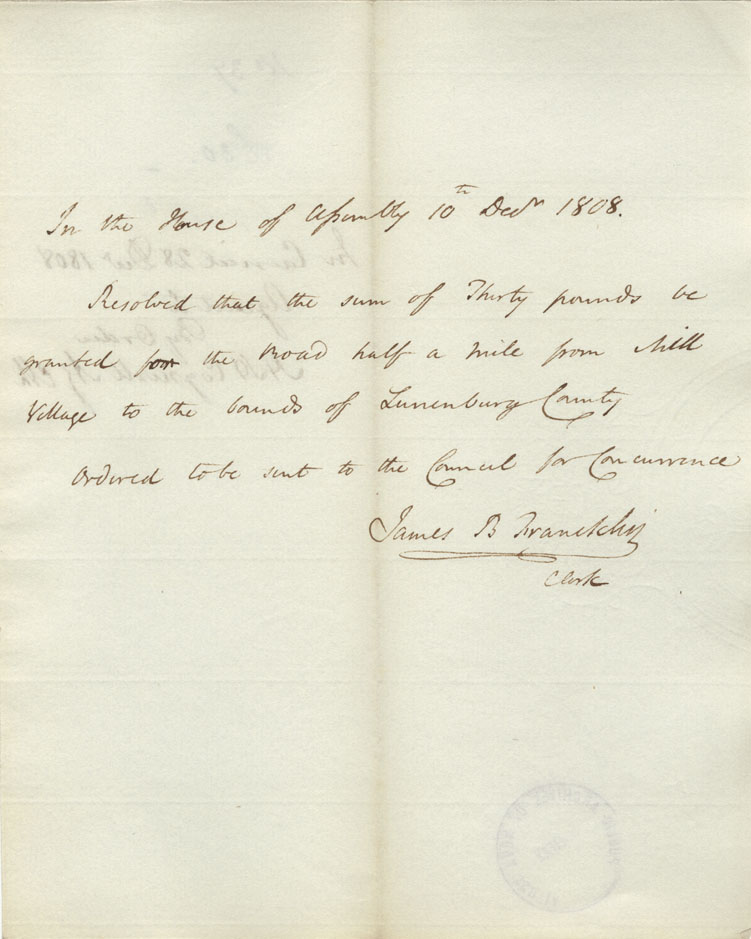 In the House of Assembly 10th Decr 1808.
Resolved that the sum of Thirty pounds be
granted for the Road half a mile from Mill
Village to the bounds of Lunenburg County
Ordered to be sent to the Council for Concurrence
James B Francklin
Clerk